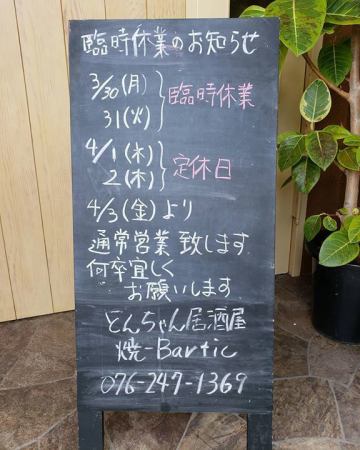 臨時休業のお知らせ
3/30(月)
31(火)
臨時休業
4/1(水)
2(木)
定休日
4/3(金)より
通常営業致します
何卒宜しく
お願いします
とんちゃん居酒屋
焼-Bartic
076-247-1369